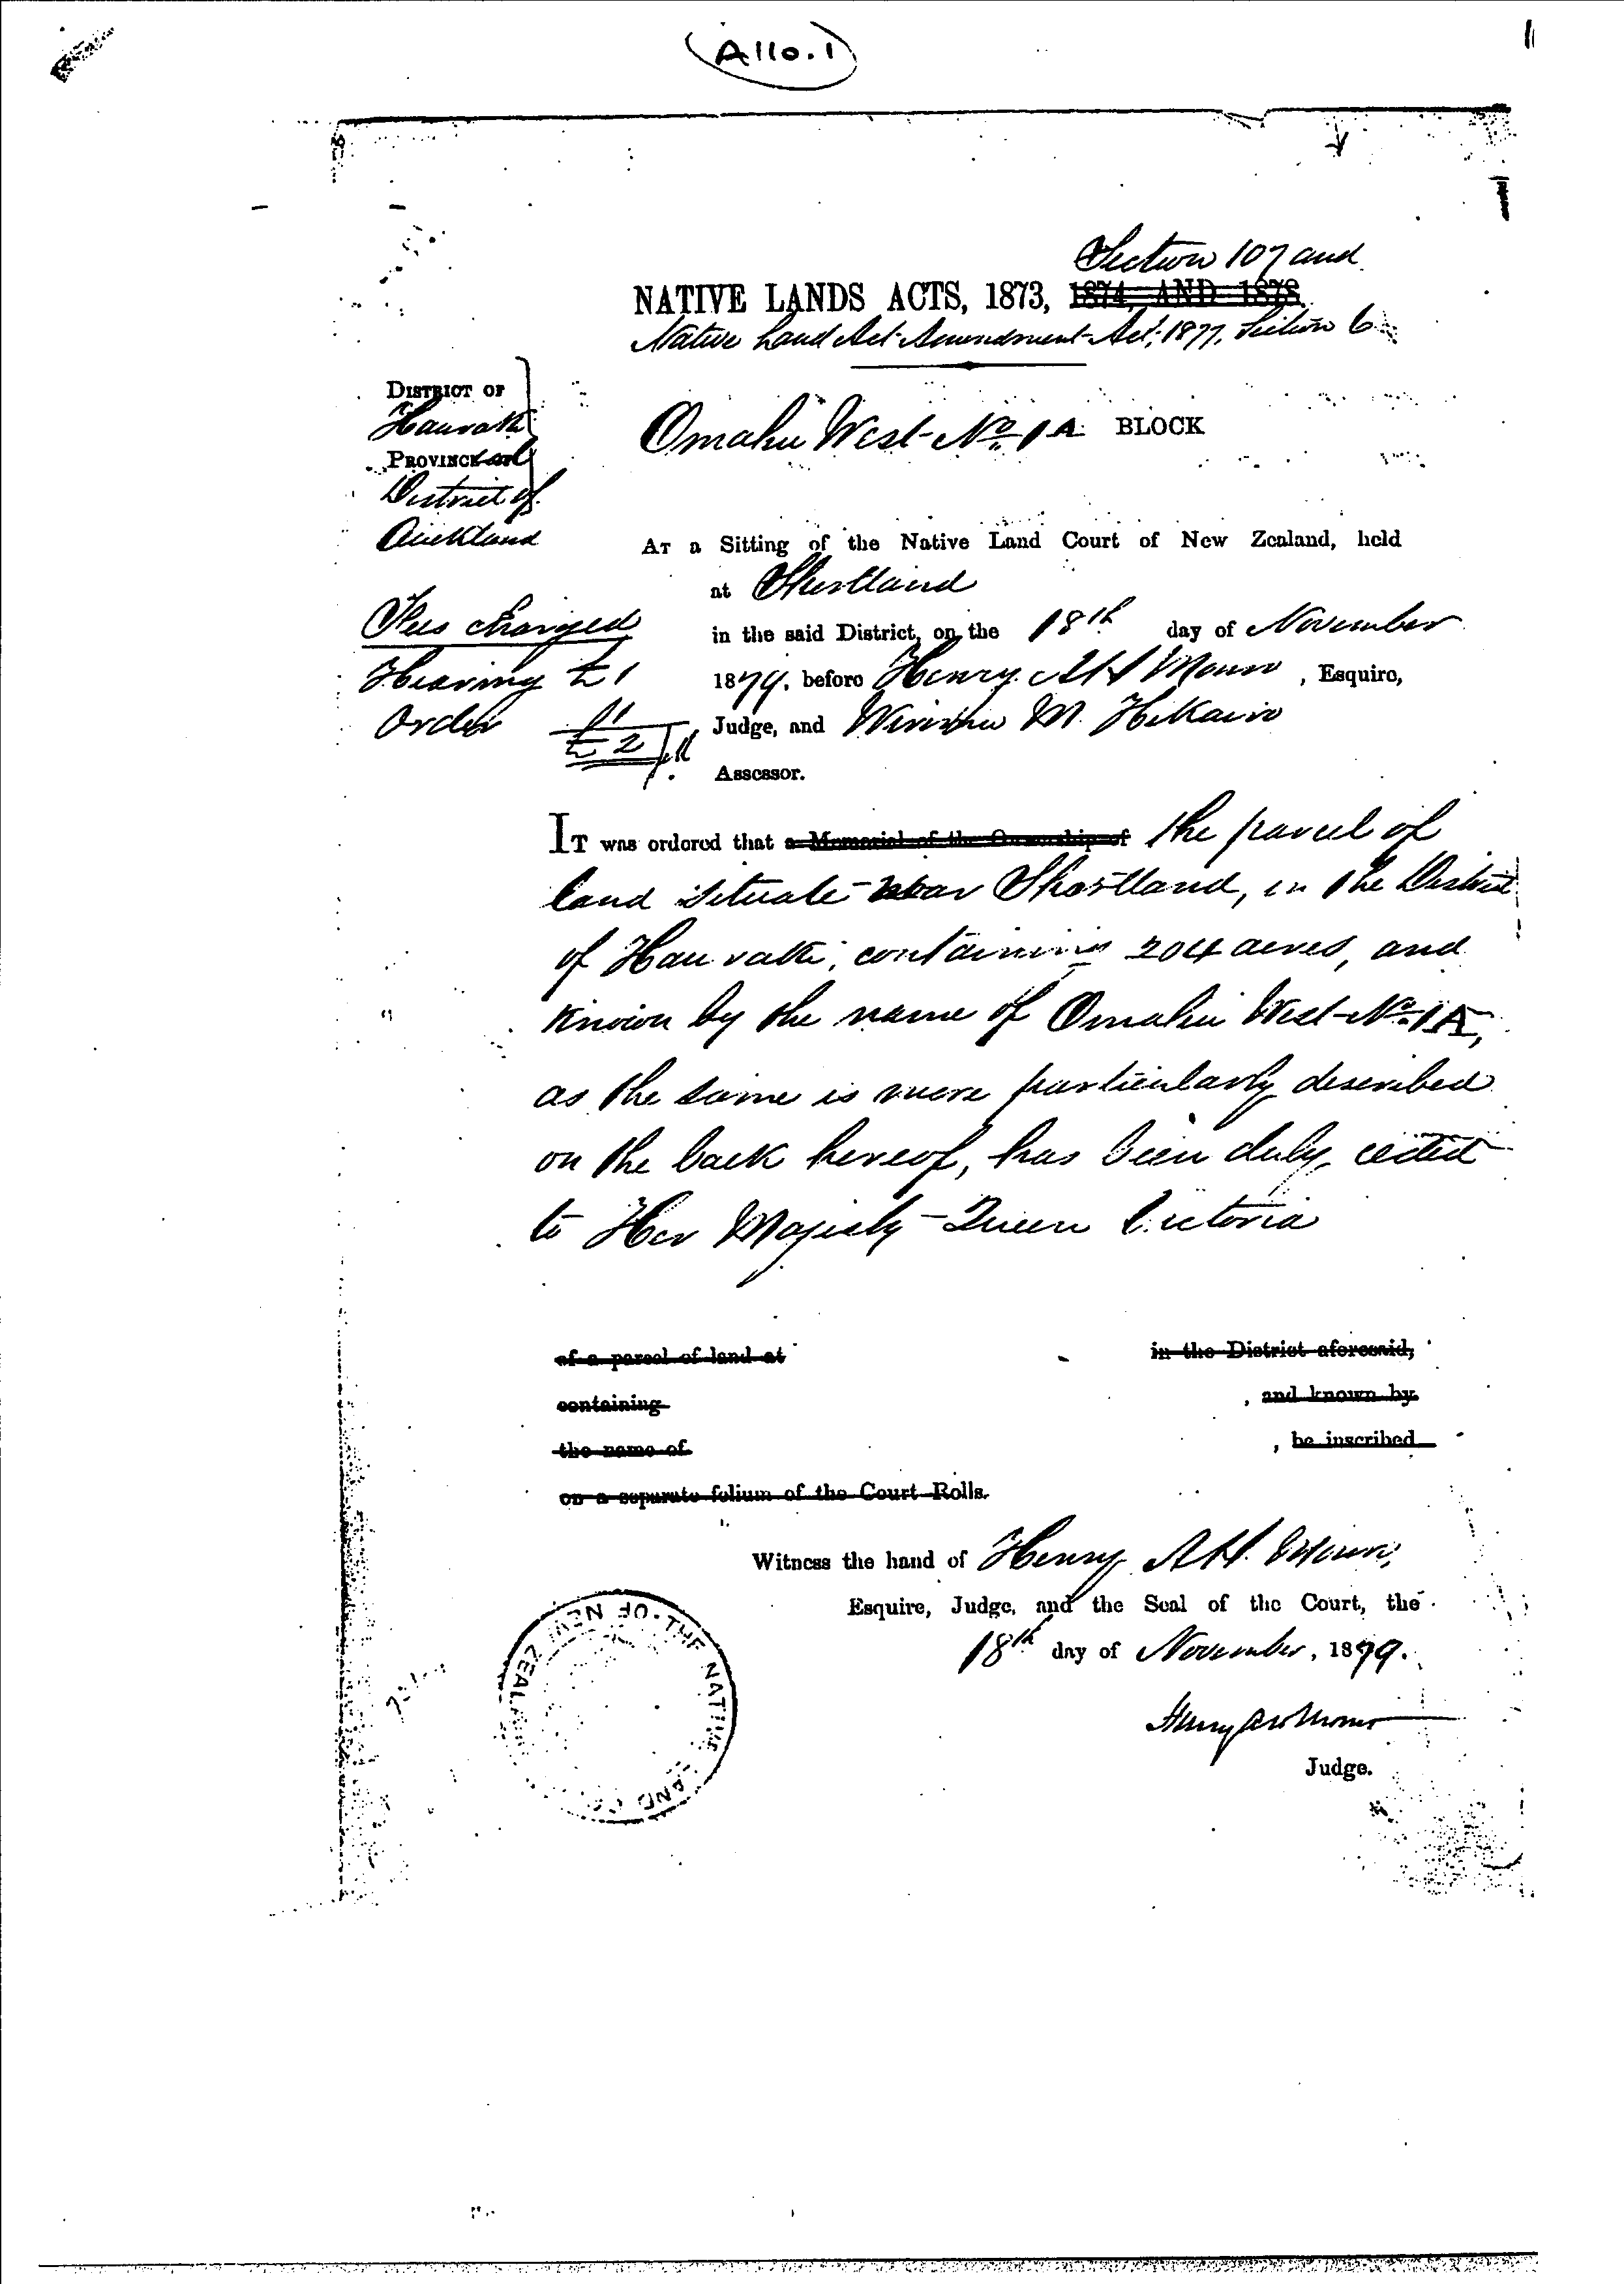 A110.1
Section 107 and
NATIVE LANDS ACTS, 1873, 1874, AND 1878
Native Land Act Amendment Act, 1877, Section 6
DISTRICT OF
Hauraki
PROVINCIAL
District of
Auckland
Omahu West No. 1A BLOCK
AT a Sitting of the Native Land Court of New Zealand, held
at Shortland
in the said District, on the 18th day of November
1879. before Henry A H Monro, Esquire,
Judge, and Wiremu M. Hikairo
Assessor.
Fees charged
Hearing £1
Order £1
£2
IT was ordered that a Memorial of the Ownership of the parcel of
land situate near Shortland, in the District
of Hauraki, containing 204 acres, and
known by the name of Omahu West No. 1A,
as the same is more particularly described
on the back hereof, has been duly ceded
to Her Majesty Queen Victoria
of a parcel of land at in the District aforesaid,
containing , and known by
the name of , be inscribed
on a separate folium of the Court Rolls.
Witness the hand of Henry A H. Monro,
Esquire, Judge, and the Seal of the Court, the
18th day of November, 1879.
Henry A H Monro
Judge.
OF THE NATIVE LAND
OF NEW ZEALAND